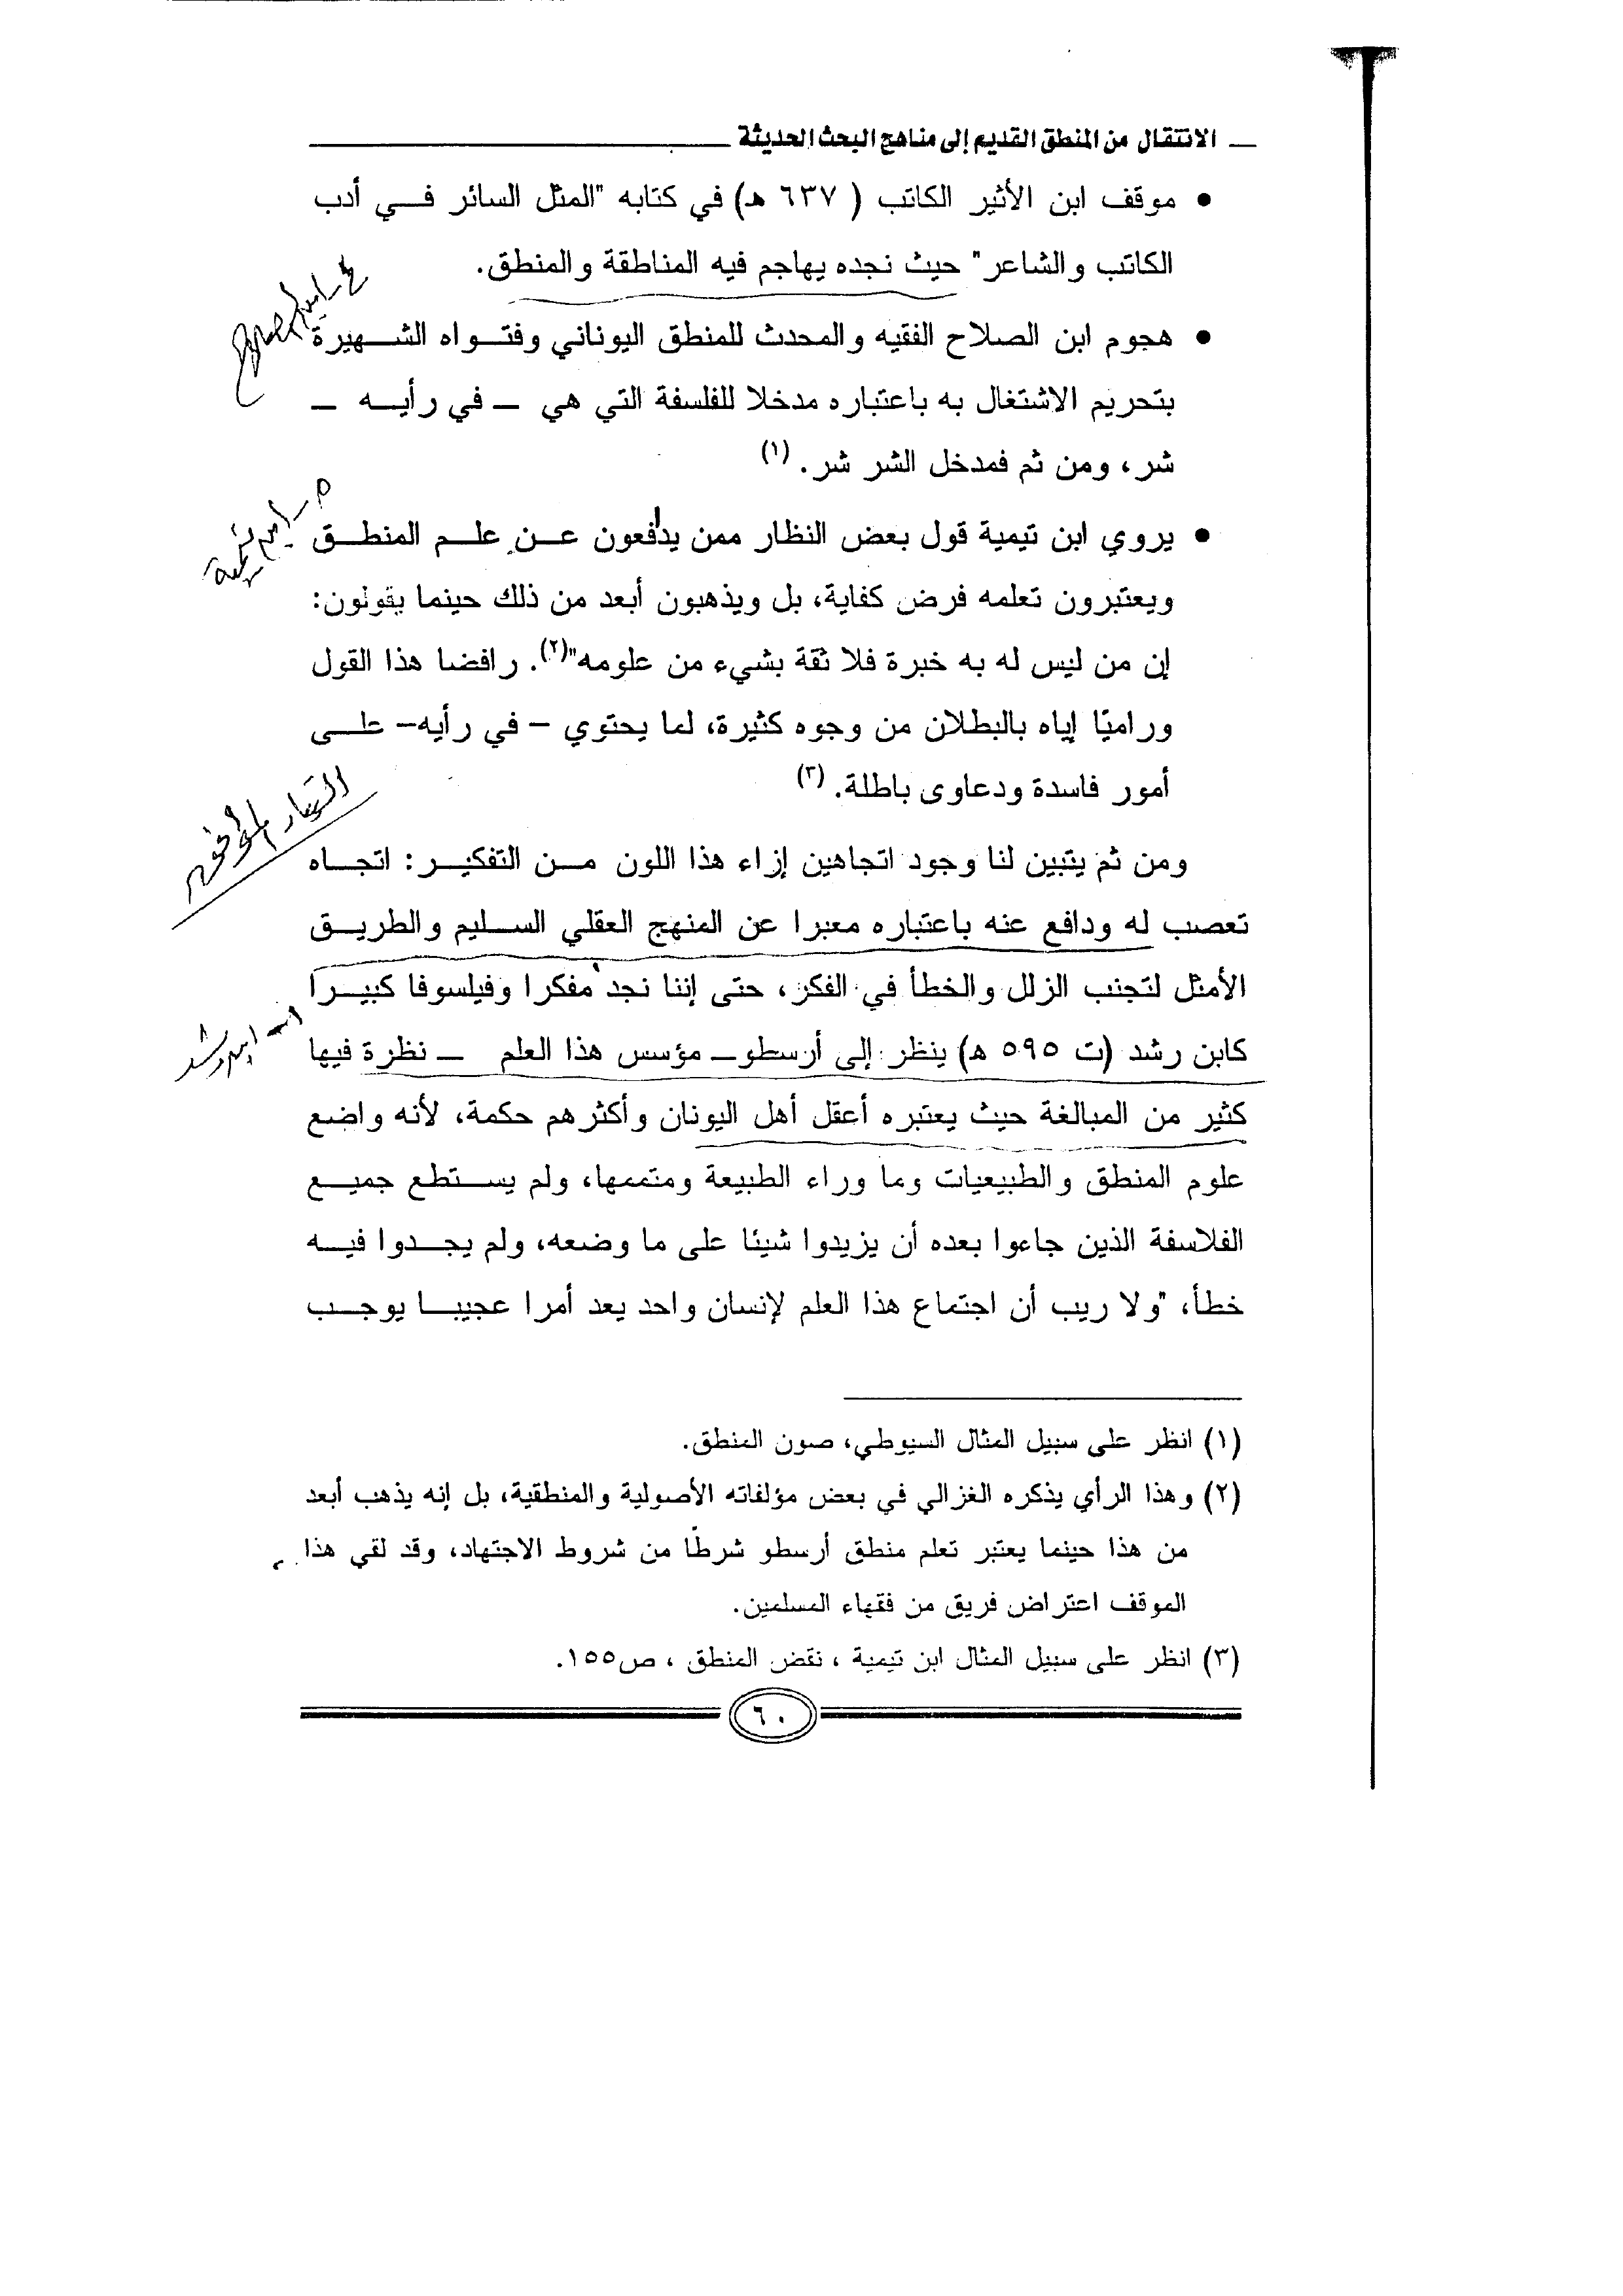 الانتقال من المنطق القديم إلى مناهج البحث الحديثة
• موقف ابن الأثير الكاتب ( ٦٣٧ هـ) في كتابه "المثل السائر في أدب
الكاتب والشاعر" حيث نجده يهاجم فيه المناطقة والمنطق.
٤ - ابن الصلاح
• هجوم ابن الصلاح الفقيه والمحدث للمنطق اليوناني وفتواه الشهيرة
بتحريم الاشتغال به باعتباره مدخلا للفلسفة التي هي – في رأيه –
شر، ومن ثم فمدخل الشر شر. (١)
٥ - ابن تيمية
• يروي ابن تيمية قول بعض النظار ممن يدافعون عن علم المنطق
ويعتبرون تعلمه فرض كفاية، بل ويذهبون أبعد من ذلك حينما يقولون:
إن من ليس له به خبرة فلا ثقة بشيء من علومه"(٢). رافضا هذا القول
وراميًا إياه بالبطلان من وجوه كثيرة، لما يحتوي – في رأيه– على
أمور فاسدة ودعاوى باطلة. (٣)
التيار
ومن ثم يتبين لنا وجود اتجاهين إزاء هذا اللون من التفكير: اتجاه
تعصب له ودافع عنه باعتباره معبرا عن المنهج العقلي السليم والطريق
الأمثل لتجنب الزلل والخطأ في الفكر، حتى إننا نجد مفكرا وفيلسوفا كبيرا
١ - ابن رشد
كابن رشد (ت ٥٩٥ هـ) ينظر إلى أرسطو– مؤسس هذا العلم – نظرة فيها
كثير من المبالغة حيث يعتبره أعقل أهل اليونان وأكثرهم حكمة، لأنه واضع
علوم المنطق والطبيعيات وما وراء الطبيعة ومتممها، ولم يستطع جميع
الفلاسفة الذين جاءوا بعده أن يزيدوا شيئا على ما وضعه، ولم يجدوا فيه
خطأ، "ولا ريب أن اجتماع هذا العلم لإنسان واحد يعد أمرا عجيبا يوجب
(١) انظر على سبيل المثال السيوطي، صون المنطق.
(٢) وهذا الرأي يذكره الغزالي في بعض مؤلفاته الأصولية والمنطقية، بل إنه يذهب أبعد
من هذا حينما يعتبر تعلم منطق أرسطو شرطًا من شروط الاجتهاد، وقد لقي هذا
الموقف اعتراض فريق من فقهاء المسلمين.
(٣) انظر على سبيل المثال ابن تيمية ، نقض المنطق ، ص١٥٥.
٦٠